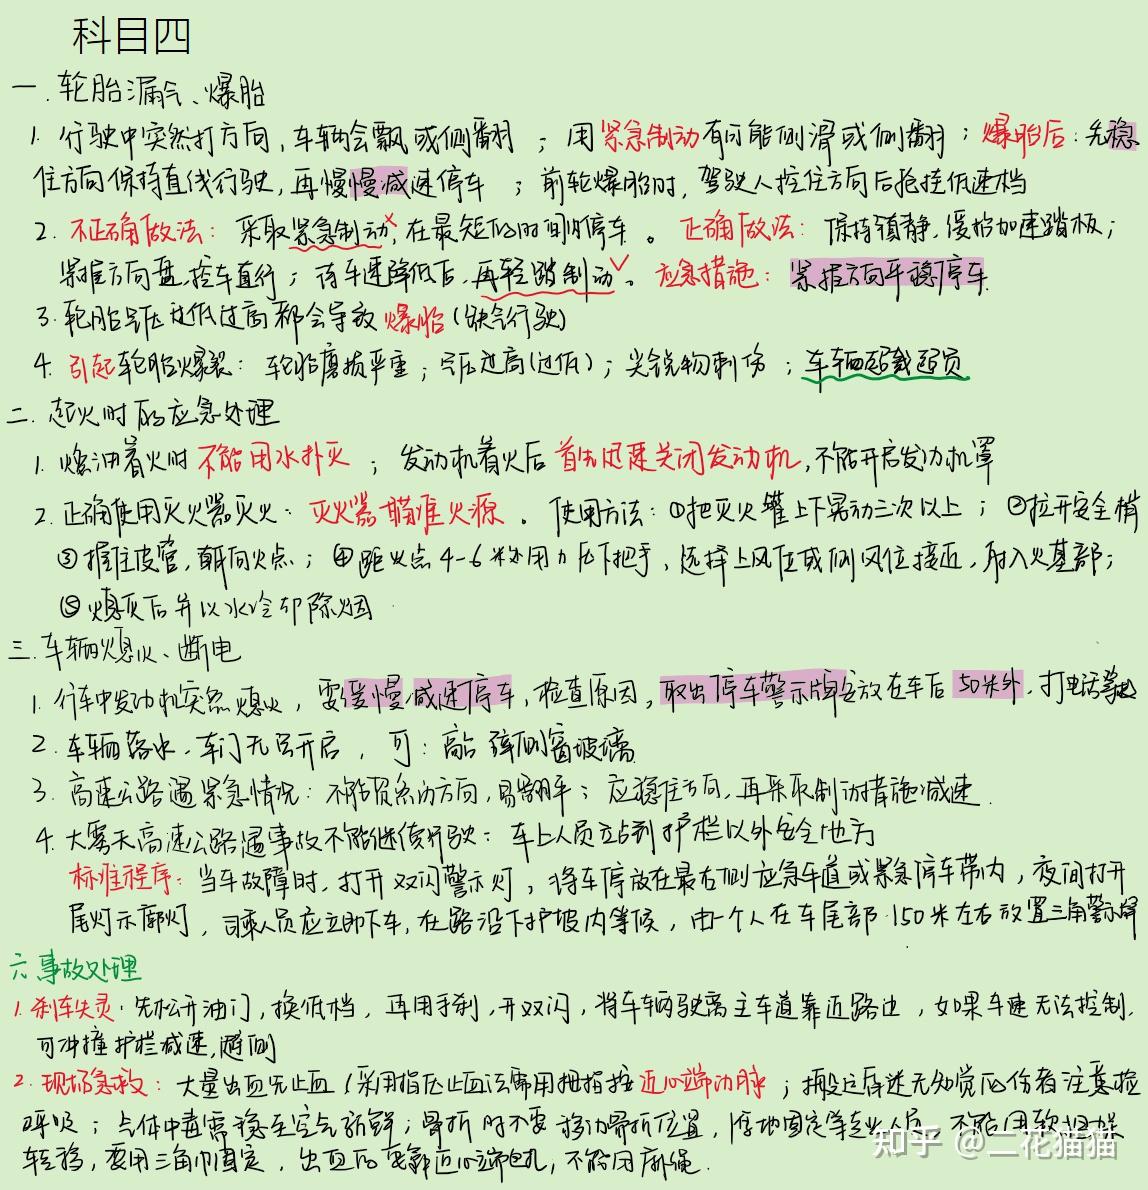 科目四
一.轮胎漏气、爆胎
1. 行驶中突然打方向,车辆会飘或侧翻；用紧急制动有可能侧滑或侧翻；爆胎后:先稳
住方向保持直线行驶,再慢慢减速停车；前轮爆胎时,驾驶人控住方向后抢挂低速档
2. 不正确做法：采取紧急制动×,在最短的时间内停车。正确做法：保持镇静,缓抬加速踏板；
紧握方向盘,控车直行；待车速降低后,再轻踏制动√。应急措施：紧握方向平稳停车.
3. 轮胎气压过低过高都会导致爆胎(缺气行驶)
4. 引起轮胎爆裂：轮胎磨损严重；气压过高(过低)；尖锐物刺伤；车辆超载超员
二.起火时的应急处理
1. 燃油着火时不能用水扑灭；发动机着火后首先迅速关闭发动机,不能开启发动机罩
2. 正确使用灭火器灭火：灭火器瞄准火源。使用方法：①把灭火罐上下晃动三次以上；②拉开安全梢
③握住皮管,朝向火点；④距火点4-6米处用力压下把手,选择上风位或侧风位接近,射入火基部；
⑤熄灭后并以水冷却除烟.
三.车辆熄火、断电
1. 行车中发动机突然熄火,要缓慢减速停车,检查原因,取出停车警示牌立放在车后50米外,打电话
2. 车辆落水,车门无法开启,可：敲碎侧窗玻璃
3. 高速公路遇紧急情况：不能急转动方向,易翻车；应稳住方向,再采取制动措施减速.
4. 大雾天高速公路遇事故不能继续行驶：车上人员立站到护栏以外安全地方
标准程序：当车故障时,打开双闪警示灯,将车停放在最右侧应急车道或紧急停车带内,夜间打开
尾灯示廓灯,司乘人员应立即下车,在路沿下护坡内等候,由一个人在车尾部150米左右放置三角警示牌
六.事故处理
1.刹车失灵：先松开油门,换低档,再用手刹,开双闪,将车辆驶离主车道靠近路边,如果车速无法控制,
可冲撞护栏减速,避侧
2.现场急救：大量出血先止血(采用指压止血法需用拇指按近心端动脉；搬运昏迷无知觉的伤者注意检
呼吸；气体中毒需移至空气新鲜；骨折时不要移动骨折位置,原地固定等专业人员,不能用软担架
轻移,要用三角巾固定,出血后要靠近心端包扎,不能用麻绳.
知乎 @二花猫猫